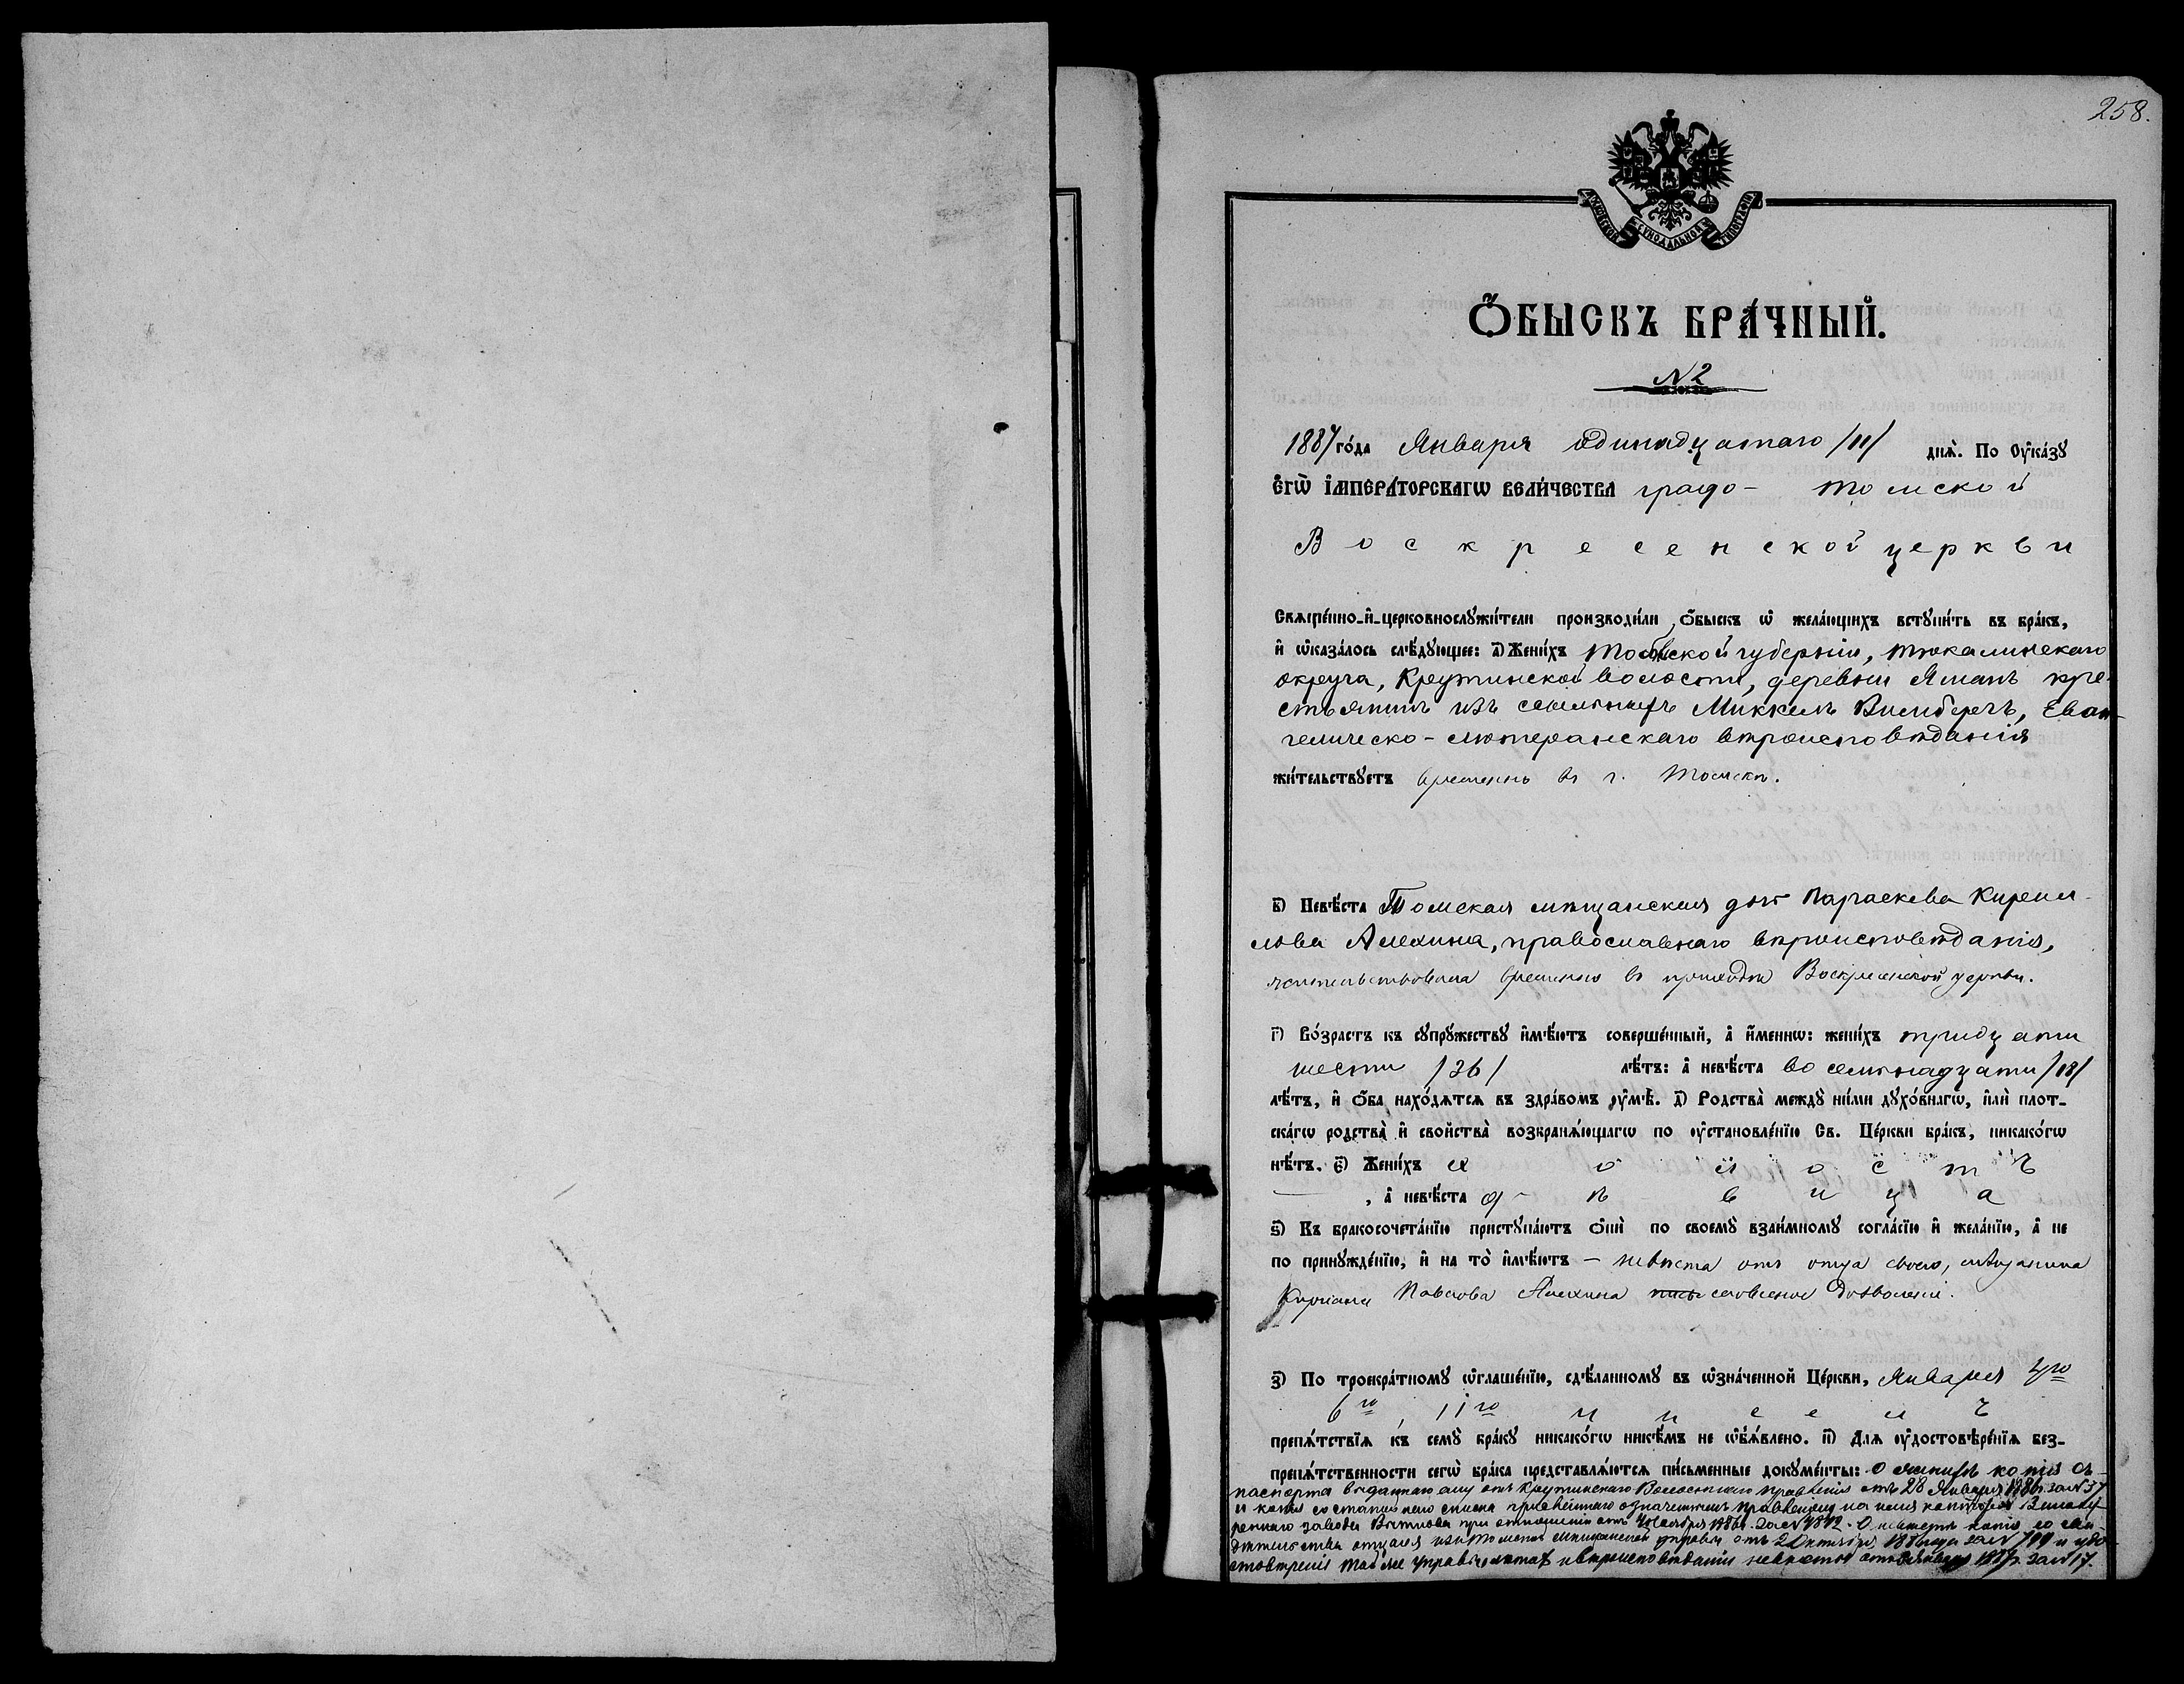 258.
МОСКОВСКОЙ СУНОДАЛЬНОЙ ТИПОГРАФІИ
ѺБЫСКЪ БРА́ЧНЫЙ.
№ 2
1887 го́да Января одинадцатаго /11/ днѧ̀. По Ѹ҆ка́зꙋ
Є҆гѡ̀ І҆МПЕРА́ТОРСКАГѠ ВЕЛИ́ЧЕСТВА градо- Томской
Воскресенской церкви
Свѧще́нно-и҆-церковнослꙋжи́тели производи́ли ѻ҆́быскъ ѡ҆ жела́ющихъ встꙋпи́ть въ бра́къ,
и҆ ѡ҆каза́лось слѣ́дꙋющее: а҃) Жени́хъ Тобольской губерніи, Тюкалинскаго
округа, Крутинской волости, деревни Яманъ кре-
стьянинъ изъ ссыльныхъ Миккель Вимбергъ, Еван-
гелическо-лютеранскаго вѣроисповѣданія
жи́тельствꙋетъ временно въ г. Томскѣ.
в҃) Невѣ́ста Томская мѣщанская дочь Параскева Кирил-
лова Алехина, православнаго вѣроисповѣданія,
жительствовала временно въ приходѣ Воскресенской церкви.
г҃) Во́зрастъ къ сꙋпрꙋ́жествꙋ и҆мѣ́ютъ соверше́нный, а҆ и҆́меннѡ: жени́хъ тридцати
шести /36/ лѣ́тъ: а҆ невѣ́ста восемьнадцати /18/
лѣ́тъ, и҆ ѻ҆́ба нахо́дѧтсѧ въ здра́вомъ ѹ҆мѣ̀. д҃) Родства̀ междꙋ̀ ни́ми дꙋхо́внагѡ, и҆лѝ плот-
ска́гѡ родства̀ и҆ свойства̀ возбранѧ́ющагѡ по ѹ҆становле́нїю Св. Це́ркви бра́къ, никако́гѡ
нѣ́тъ. є҃) Жени́хъ холостъ
, а҆ невѣ́ста дѣвица
ѕ҃) Къ бракосочета́нїю пристꙋпа́ютъ ѻ҆нѝ по своемꙋ̀ взаи́мномꙋ согла́сїю и҆ жела́нїю, а҆ не
по принꙋжде́нїю, и҆ на то̀ и҆мѣ́ютъ – невѣста отъ отца своего, мѣщанина
Киріана Павлова Алехина словесное дозволеніе.
з҃) По троекра́тномꙋ ѡ҆глаше́нїю, сдѣ́ланномꙋ въ ѡ҆зна́ченной Це́ркви, Января 4го
6го, 11го чиселъ
препѧ́тствїѧ къ семꙋ̀ бра́кꙋ никако́гѡ никѣ́мъ не ѡ҆б̾ѧ́влено. и҃) Длѧ ѹ҆достовѣре́нїѧ без-
препѧ́тственности сегѡ̀ бра́ка представлѧ́ютсѧ пи́сьменные докꙋме́нты: О женихѣ копія съ
паспорта выданнаго ему отъ Крутинскаго Волостнаго правленія отъ 28 Января 1886 г. за № 57
и копія со статейнаго списка означеннымъ правленіемъ на имя конторы Виноку-
реннаго завода при отношеніи отъ 1886 г. за № 4842. О невѣстѣ копія со сви-
дѣтельства отца ея изъ Томской Мѣщанской управы отъ 2 Октября 188 года за № 709 и удо-
стовѣренія той же управы о лѣтахъ и вѣроисповѣданіи невѣсты отъ Января 1887 г. за № 17.